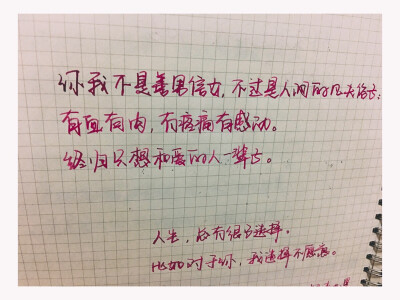 你我不是善男信女,不过是人间的凡夫俗子;
有血有肉,有疼痛有感动。
终归只想和爱的人一辈子。
人生,总有很多选择。
比如对于你,我选择不遗憾。